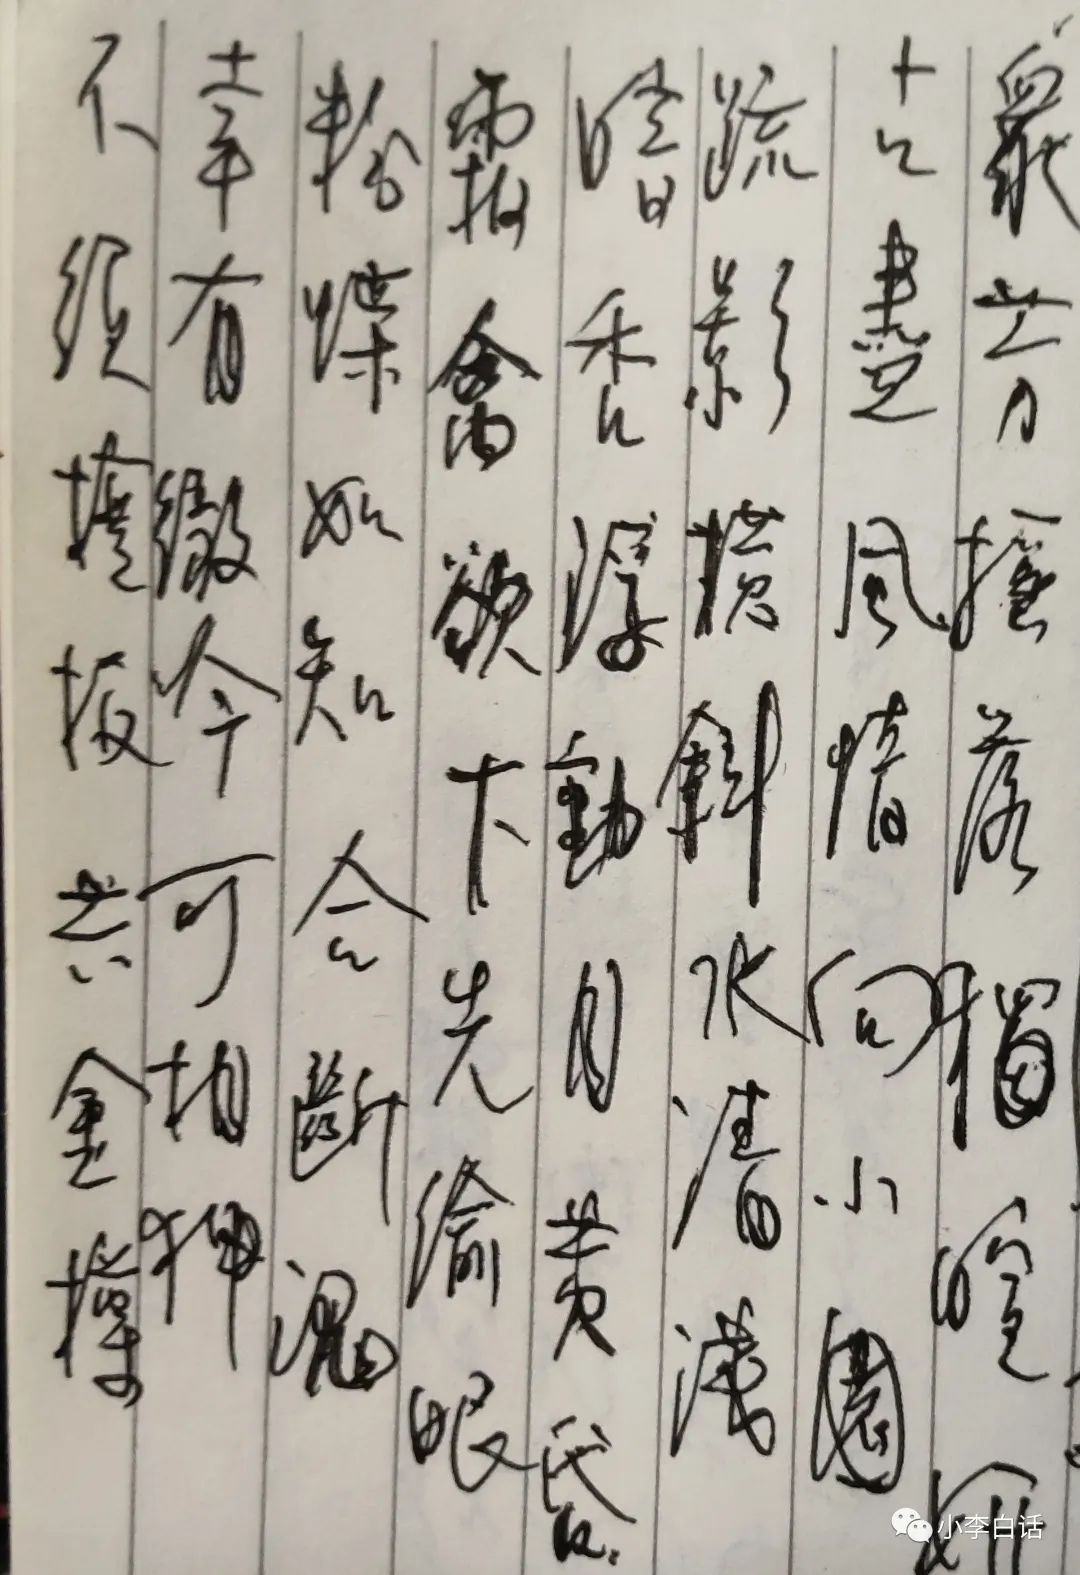 衆芳摇落獨暄妍
占盡風情向小園
疏影横斜水清淺
暗香浮動月黄昏
霜禽欲下先偷眼
粉蝶如知合斷魂
幸有微吟可相狎
不須檀板共金樽
小李白话